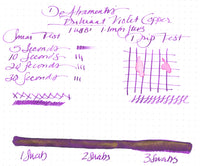 De Atramentis
Brilliant Violet Copper
Smear Test
Drip Test
5 Seconds
10 Seconds
20 Seconds
30 Seconds
1 Swab 2 Swabs 3 Swabs